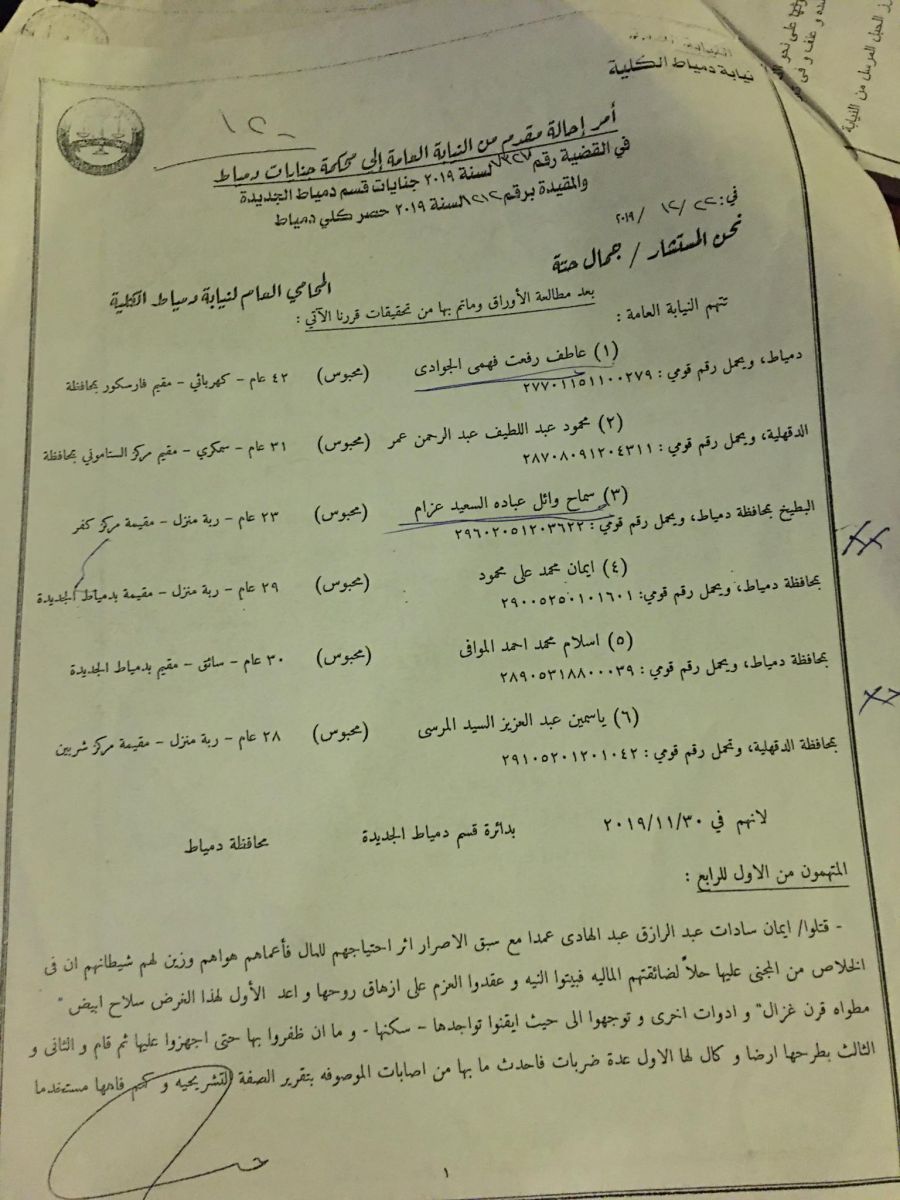 نيابة دمياط الكلية
أمر إحالة مقدم من النيابة العامة إلى محكمة جنايات دمياط
في القضية رقم لسنة ٢٠١٩ جنايات قسم دمياط الجديدة
والمقيدة برقم لسنة ٢٠١٩ حصر كلي دمياط
في: ٢٢/ ١٢/ ٢٠١٩
نحن المستشار / جمال حتة
المحامي العام لنيابة دمياط الكلية
بعد مطالعة الأوراق وماتم بها من تحقيقات قررنا الآتي :
تتهم النيابة العامة :
(١) عاطف رفعت فهمى الجوادى (محبوس) ٤٢ عام - كهربائي - مقيم فارسكور بمحافظة
دمياط، ويحمل رقم قومي : ٢٧٧٠١١٥١١٠٠٢٧٩
(٢) محمود عبد اللطيف عبد الرحمن عمر (محبوس) ٣١ عام - سمكري - مقيم مركز الستاموني بمحافظة
الدقهلية، ويحمل رقم قومي : ٢٨٧٠٨٠٩١٢٠٤٣١١
(٣) سماح وائل عباده السعيد عزام (محبوس) ٢٣ عام - ربة منزل - مقيمة مركز كفر
البطيخ بمحافظة دمياط، ويحمل رقم قومي : ٢٩٦٠٢٠٥١٢٠٣٦٢٢
(٤) ايمان محمد على محمود (محبوس) ٢٩ عام - ربة منزل - مقيمة بدمياط الجديدة
بمحافظة دمياط، ويحمل رقم قومي: ٢٩٠٠٥٢٥٠١٠١٦٠١
(٥) اسلام محمد احمد الموافى (محبوس) ٣٠ عام - سائق - مقيم بدمياط الجديدة
بمحافظة دمياط، ويحمل رقم قومي : ٢٨٩٠٥٣١٨٨٠٠٠٣٩
(٦) ياسمين عبد العزيز السيد المرسى (محبوس) ٢٨ عام - ربة منزل - مقيمة مركز شربين
بمحافظة الدقهلية، وتحمل رقم قومي : ٢٩١٠٥٢٠١٢٠١٠٤٢
لانهم في ٢٠١٩/١١/٣٠ بدائرة قسم دمياط الجديدة محافظة دمياط
المتهمون من الاول للرابع :
- قتلوا/ ايمان سادات عبد الرازق عبد الهادى عمدا مع سبق الاصرار اثر احتياجهم للمال فأعماهم هواهم وزين لهم شيطانهم ان فى
الخلاص من المجنى عليها حلاً لضائقتهم الماليه فبيتوا النيه و عقدوا العزم على ازهاق روحها و اعد الأول لهذا الغرض سلاح ابيض "
مطواه قرن غزال" و ادوات اخرى و توجهوا الى حيث ايقنوا تواجدها - سكنها - و ما ان ظفروا بها حتى اجهزوا عليها ثم قام و الثانى و
الثالث بطرحها ارضا و كال لها الاول عدة ضربات فاحدث ما بها من اصابات الموصوفه بتقرير الصفة التشريحيه و كمم فاهها مستخدما
١